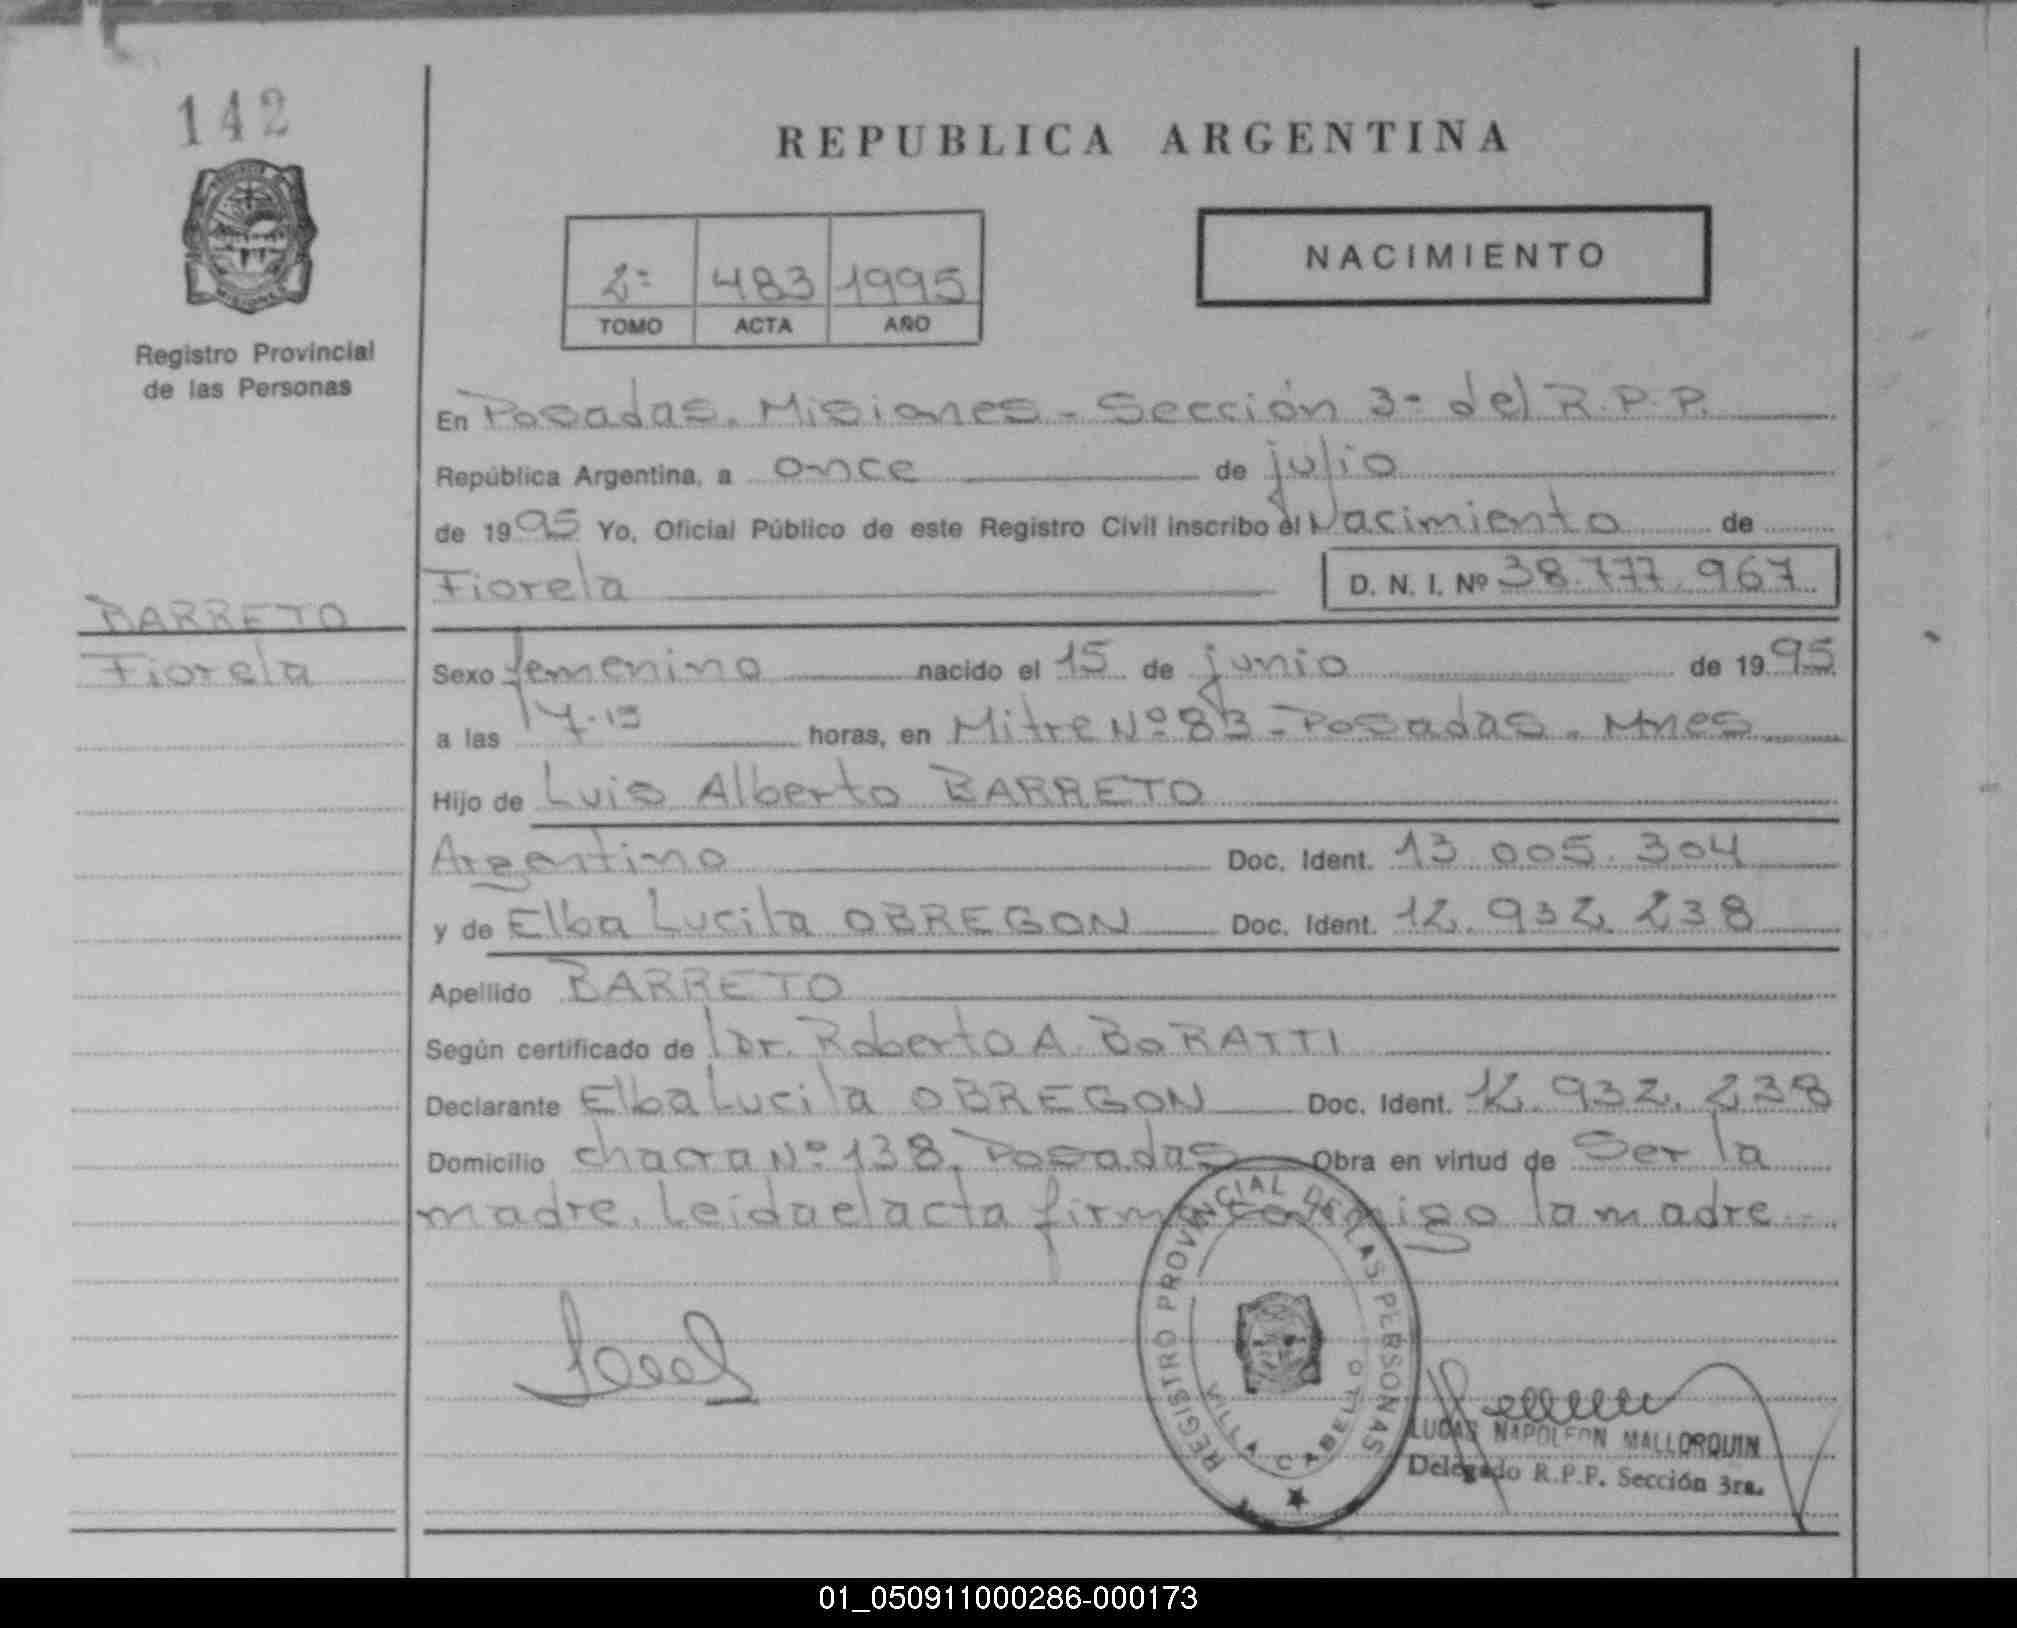 142
REPUBLICA ARGENTINA
NACIMIENTO
2º 483 1995
TOMO ACTA AÑO
Registro Provincial
de las Personas
En Posadas. Misiones - Sección 3ª del R.P.P.
República Argentina, a once de julio
de 1995 Yo, Oficial Público de este Registro Civil inscribo el Nacimiento de
Fiorela D. N. I. Nº 38.777.967
BARRETO
Fiorela
Sexo femenino nacido el 15 de junio de 1995
a las 17.15 horas, en Mitre Nº 83 - Posadas. Mnes
Hijo de Luis Alberto BARRETO
Argentino Doc. Ident. 13.005.304
y de Elba Lucila OBREGON Doc. Ident. 12.932.238
Apellido BARRETO
Según certificado de Dr. Roberto A. BORATTI
Declarante Elba Lucila OBREGON Doc. Ident. 12.932.238
Domicilio chacra Nº 138. Posadas Obra en virtud de Ser la
madre. Leida el acta firma conmigo la madre
REGISTRO PROVINCIAL DE LAS PERSONAS
VILLA CABELLO
LUCAS NAPOLEON MALLORQUIN
Delegado R.P.P. Sección 3ra.
01_050911000286-000173